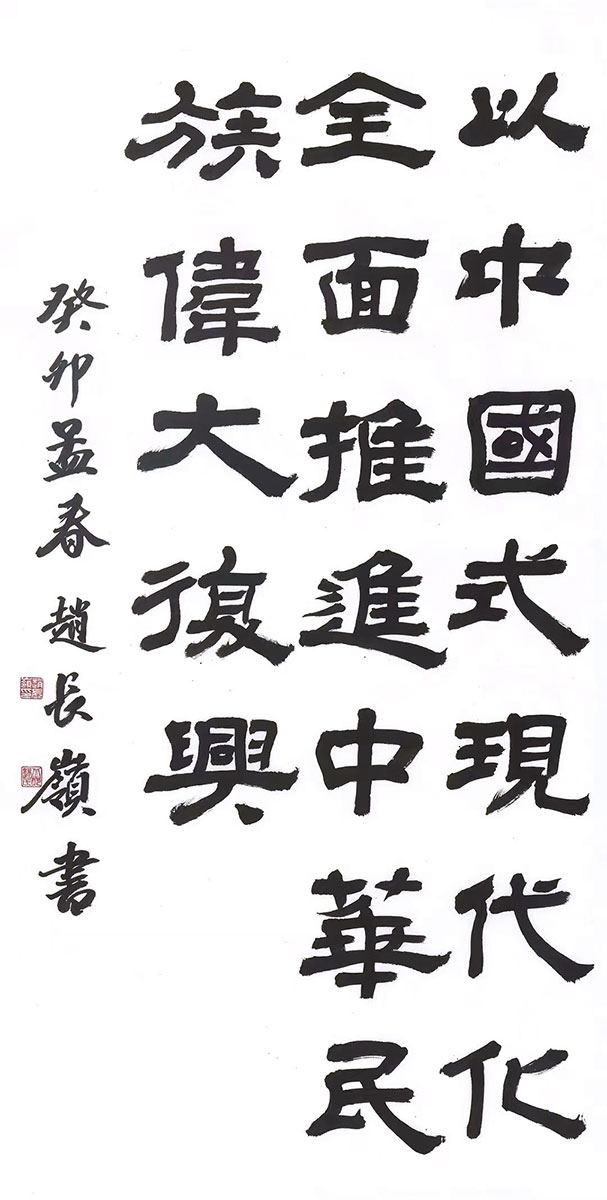 以中國式現代化
全面推進中華民
族偉大復興
癸卯孟春趙長嶺書